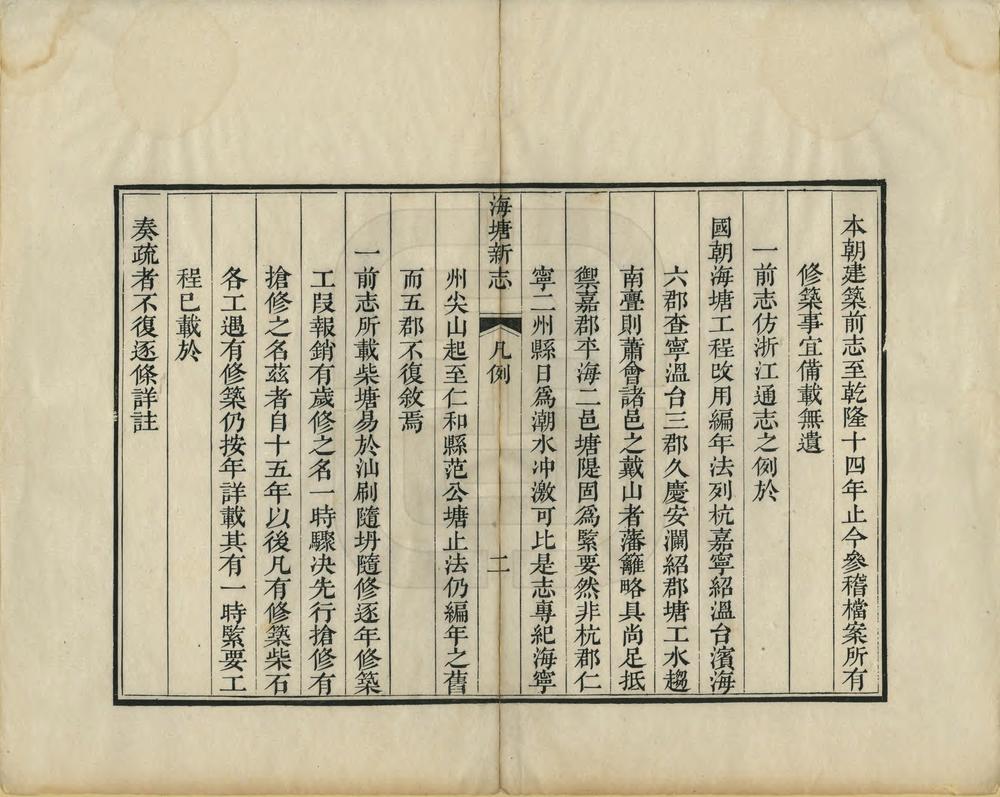 本朝建築前志至乾隆十四年止今參稽檔案所有
修築事宜備載無遺
一前志仿浙江通志之例於
國朝海塘工程改用編年法列杭嘉寧紹溫台濱海
六郡查寧溫台三郡久慶安瀾紹郡塘工水趨
南亹則蕭會諸邑之戴山者藩籬略具尚足抵
禦嘉郡平海二邑塘隄固爲緊要然非杭郡仁
寧二州縣日爲潮水冲激可比是志專紀海寧
海塘新志 凡例 二
州尖山起至仁和縣范公塘止法仍編年之舊
而五郡不復敘焉
一前志所載柴塘易於汕刷隨坍隨修逐年修築
工段報銷有歲修之名一時驟决先行搶修有
搶修之名茲者自十五年以後凡有修築柴石
各工遇有修築仍按年詳載其有一時緊要工
程已載於
奏疏者不復逐條詳註